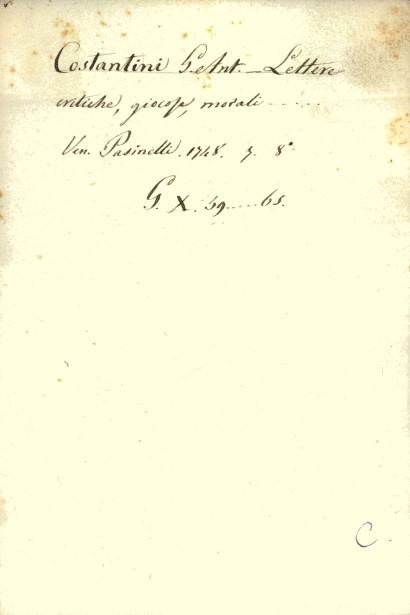 Costantini G. Ant. _ Lettere
critiche, giocose, morali ......
Ven. Pasinelli. 1748. 7. 8°.
G. X. 59.....65.
C.